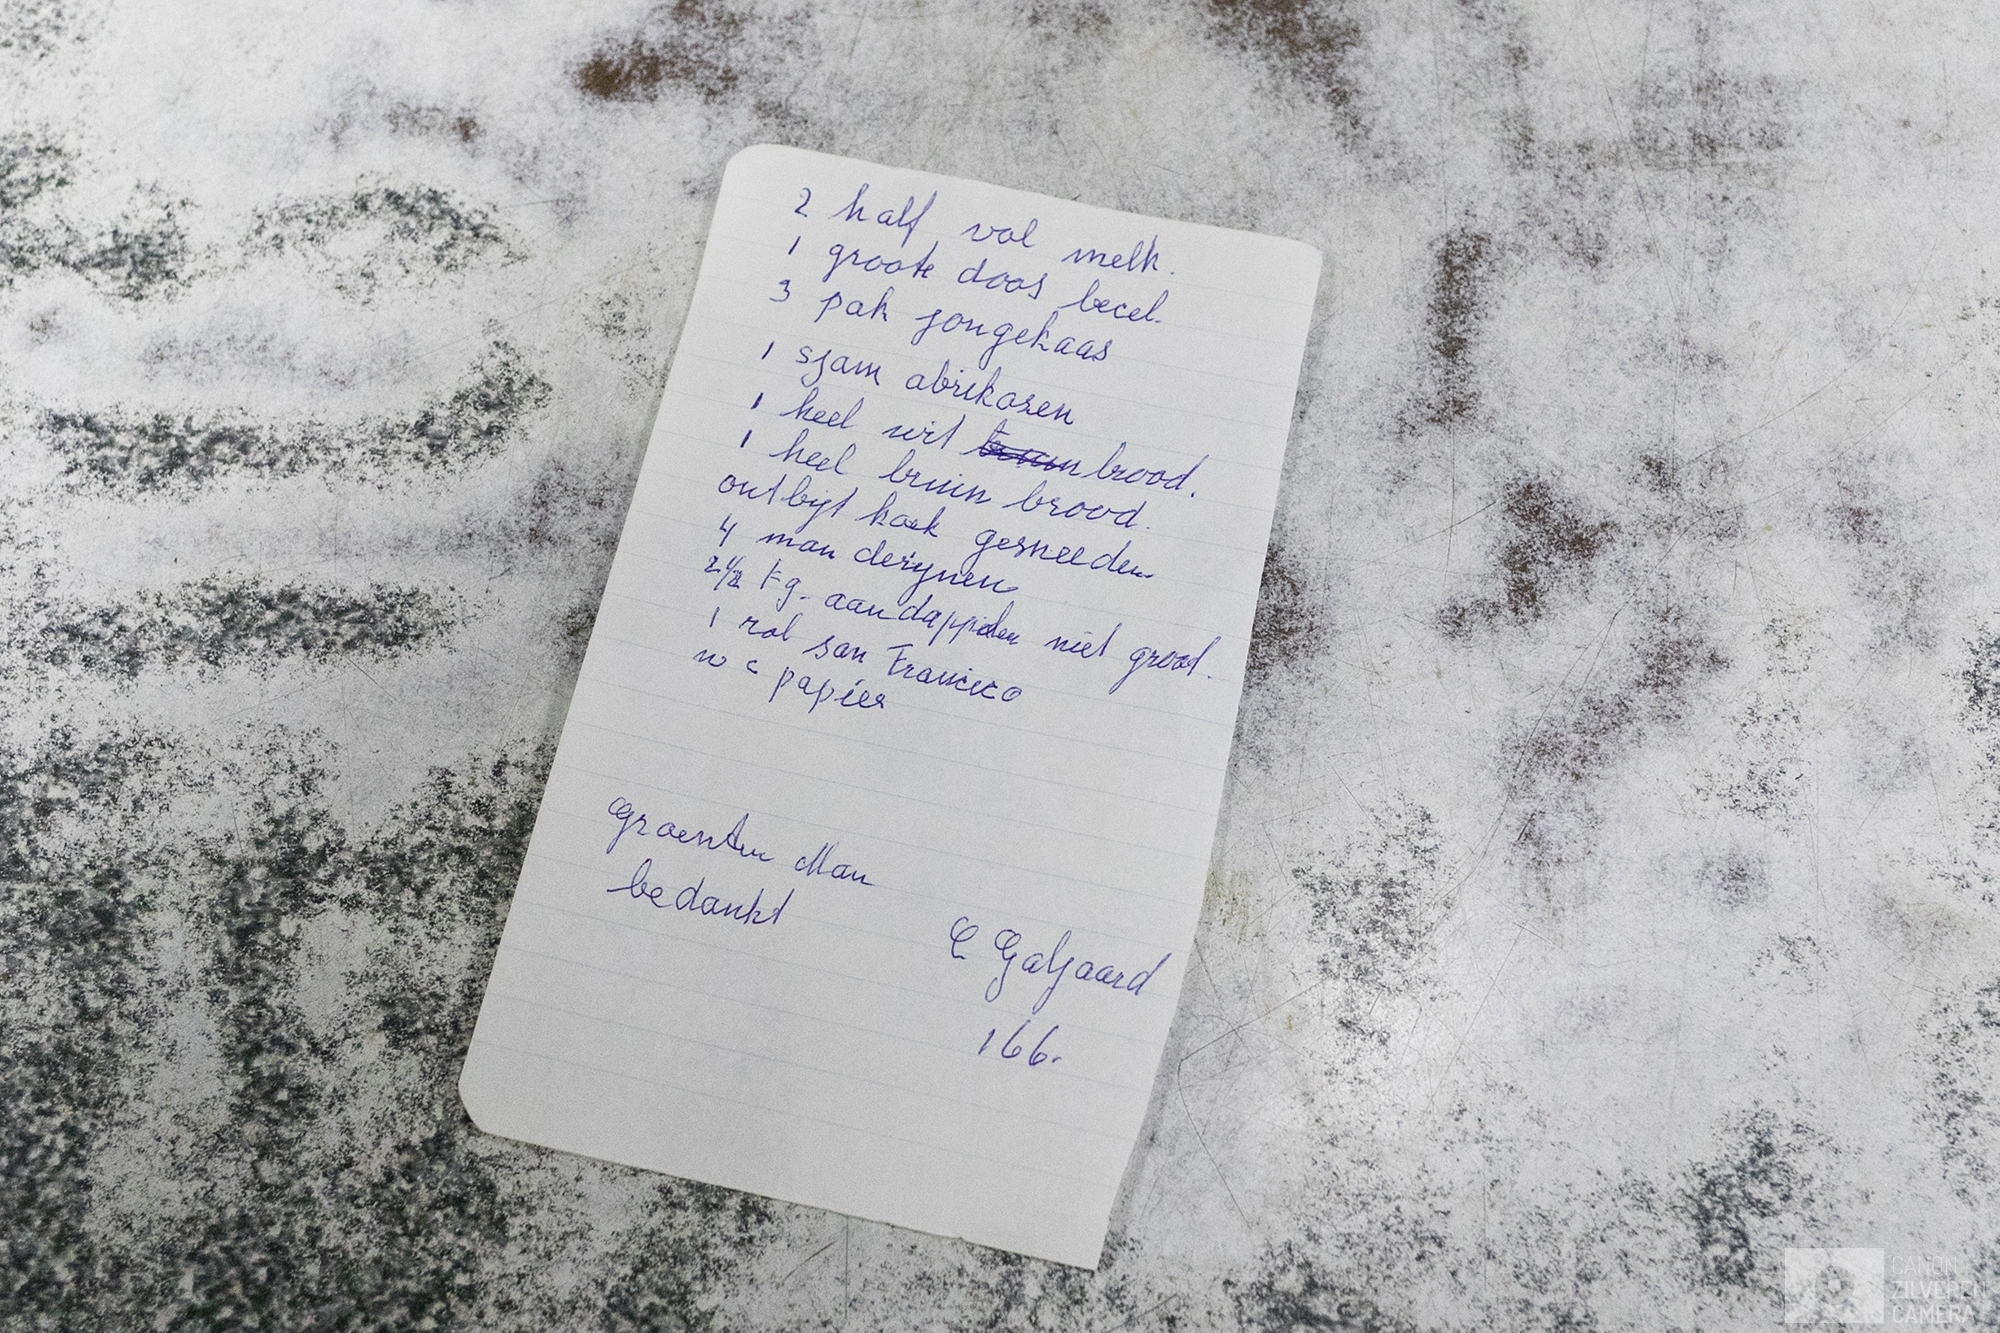 2 half vol melk.
1 groote doos becel.
3 pak jongekaas
1 sjam abrikosen
1 heel wit brood.
1 heel bruin brood.
outbijt koek gesneeden
4 man derijnen
2 1/2 kg. aandappelen niet groot.
1 rol san Francisco
w c papier
Groenten Man
bedankt
C Galjaard
166.
CANON
ZILVEREN
CAMERA